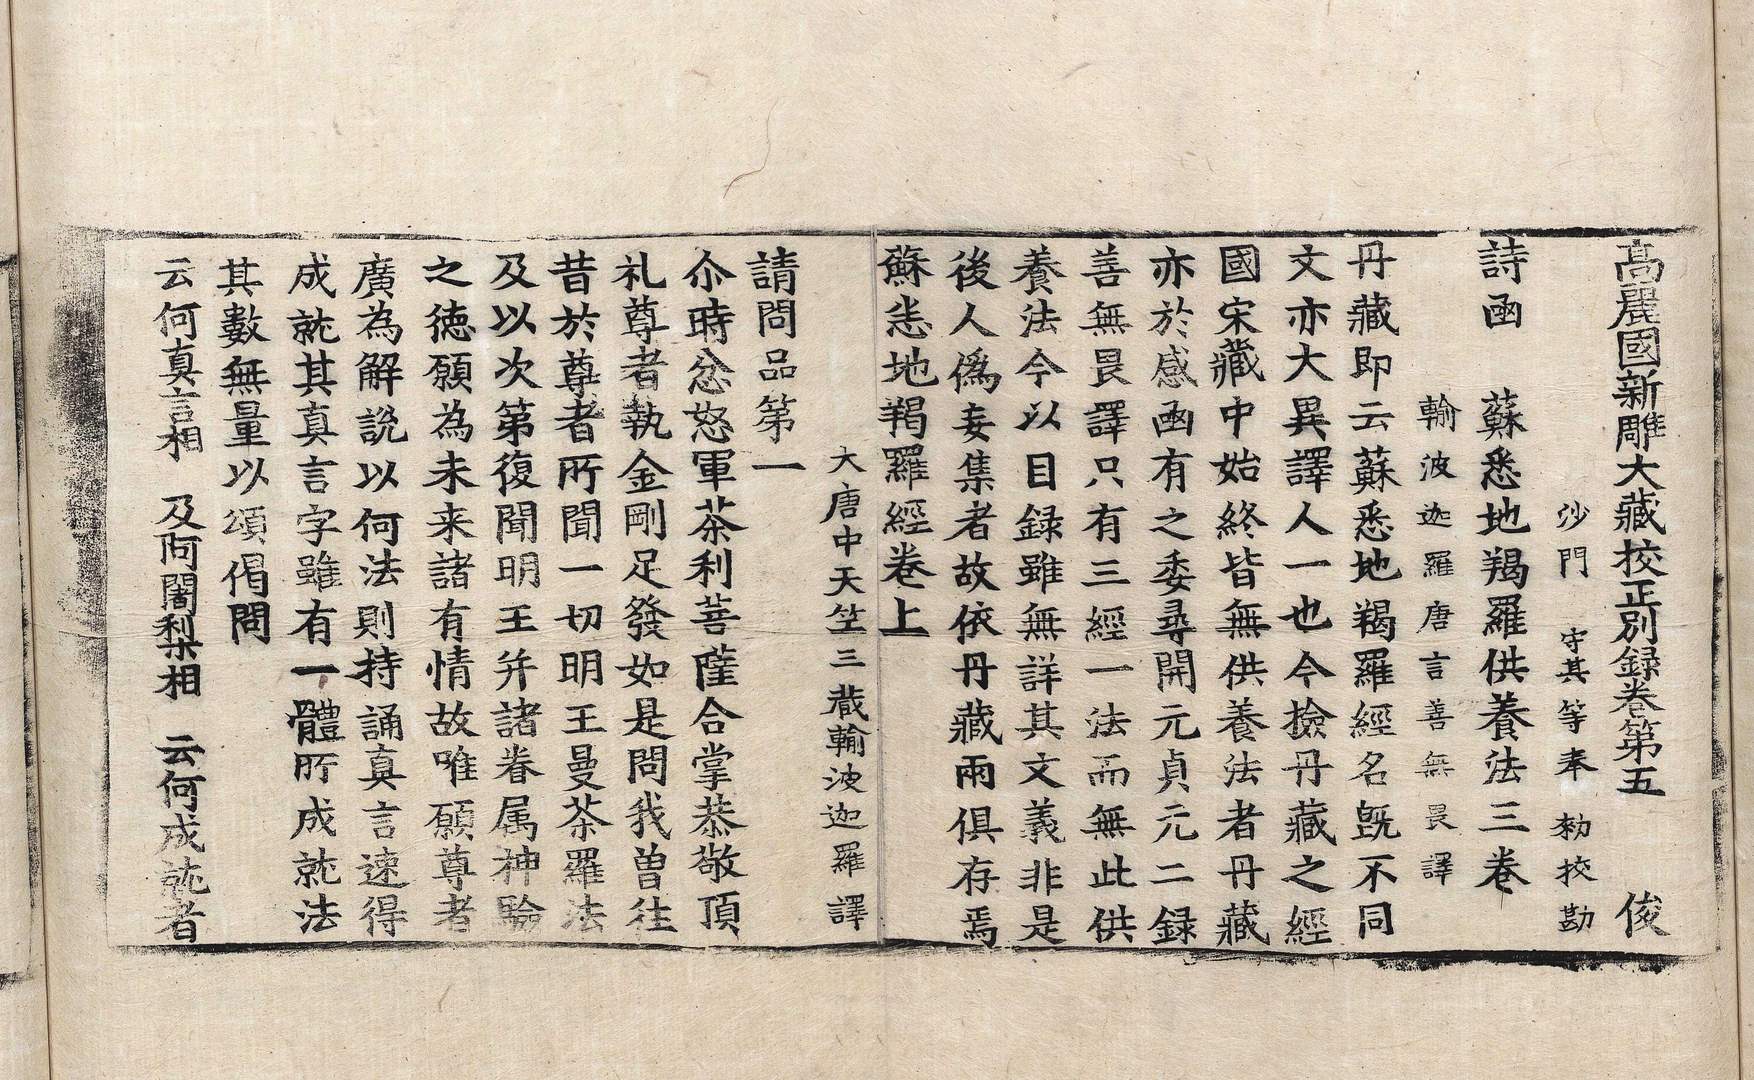 高麗國新雕大藏校正別録卷第五　俊
沙門　守其等奉　勑挍勘
詩函　蘇悉地羯羅供養法三卷
輸波迦羅唐言善無畏譯
丹藏即云蘇悉地羯羅經名旣不同
文亦大異譯人一也今撿丹藏之經
國宋藏中始終皆無供養法者丹藏
亦於感函有之委尋開元貞元二録
善無畏譯只有三經一法而無此供
養法今以目録雖無詳其文義非是
後人僞妄集者故依丹藏兩俱存焉
蘇悉地羯羅經卷上
大唐中天竺三藏輸波迦羅譯
請問品第一
尒時忿怒軍荼利菩薩合掌恭敬頂
礼尊者執金剛足發如是問我曽往
昔於尊者所聞一切明王曼荼羅法
及以次第復聞明王并諸眷属神驗
之徳願為未来諸有情故唯願尊者
廣為解說以何法則持誦真言速得
成就其真言字雖有一體所成就法
其數無量以頌偈問
云何真言相　及阿闍梨相　云何成就者